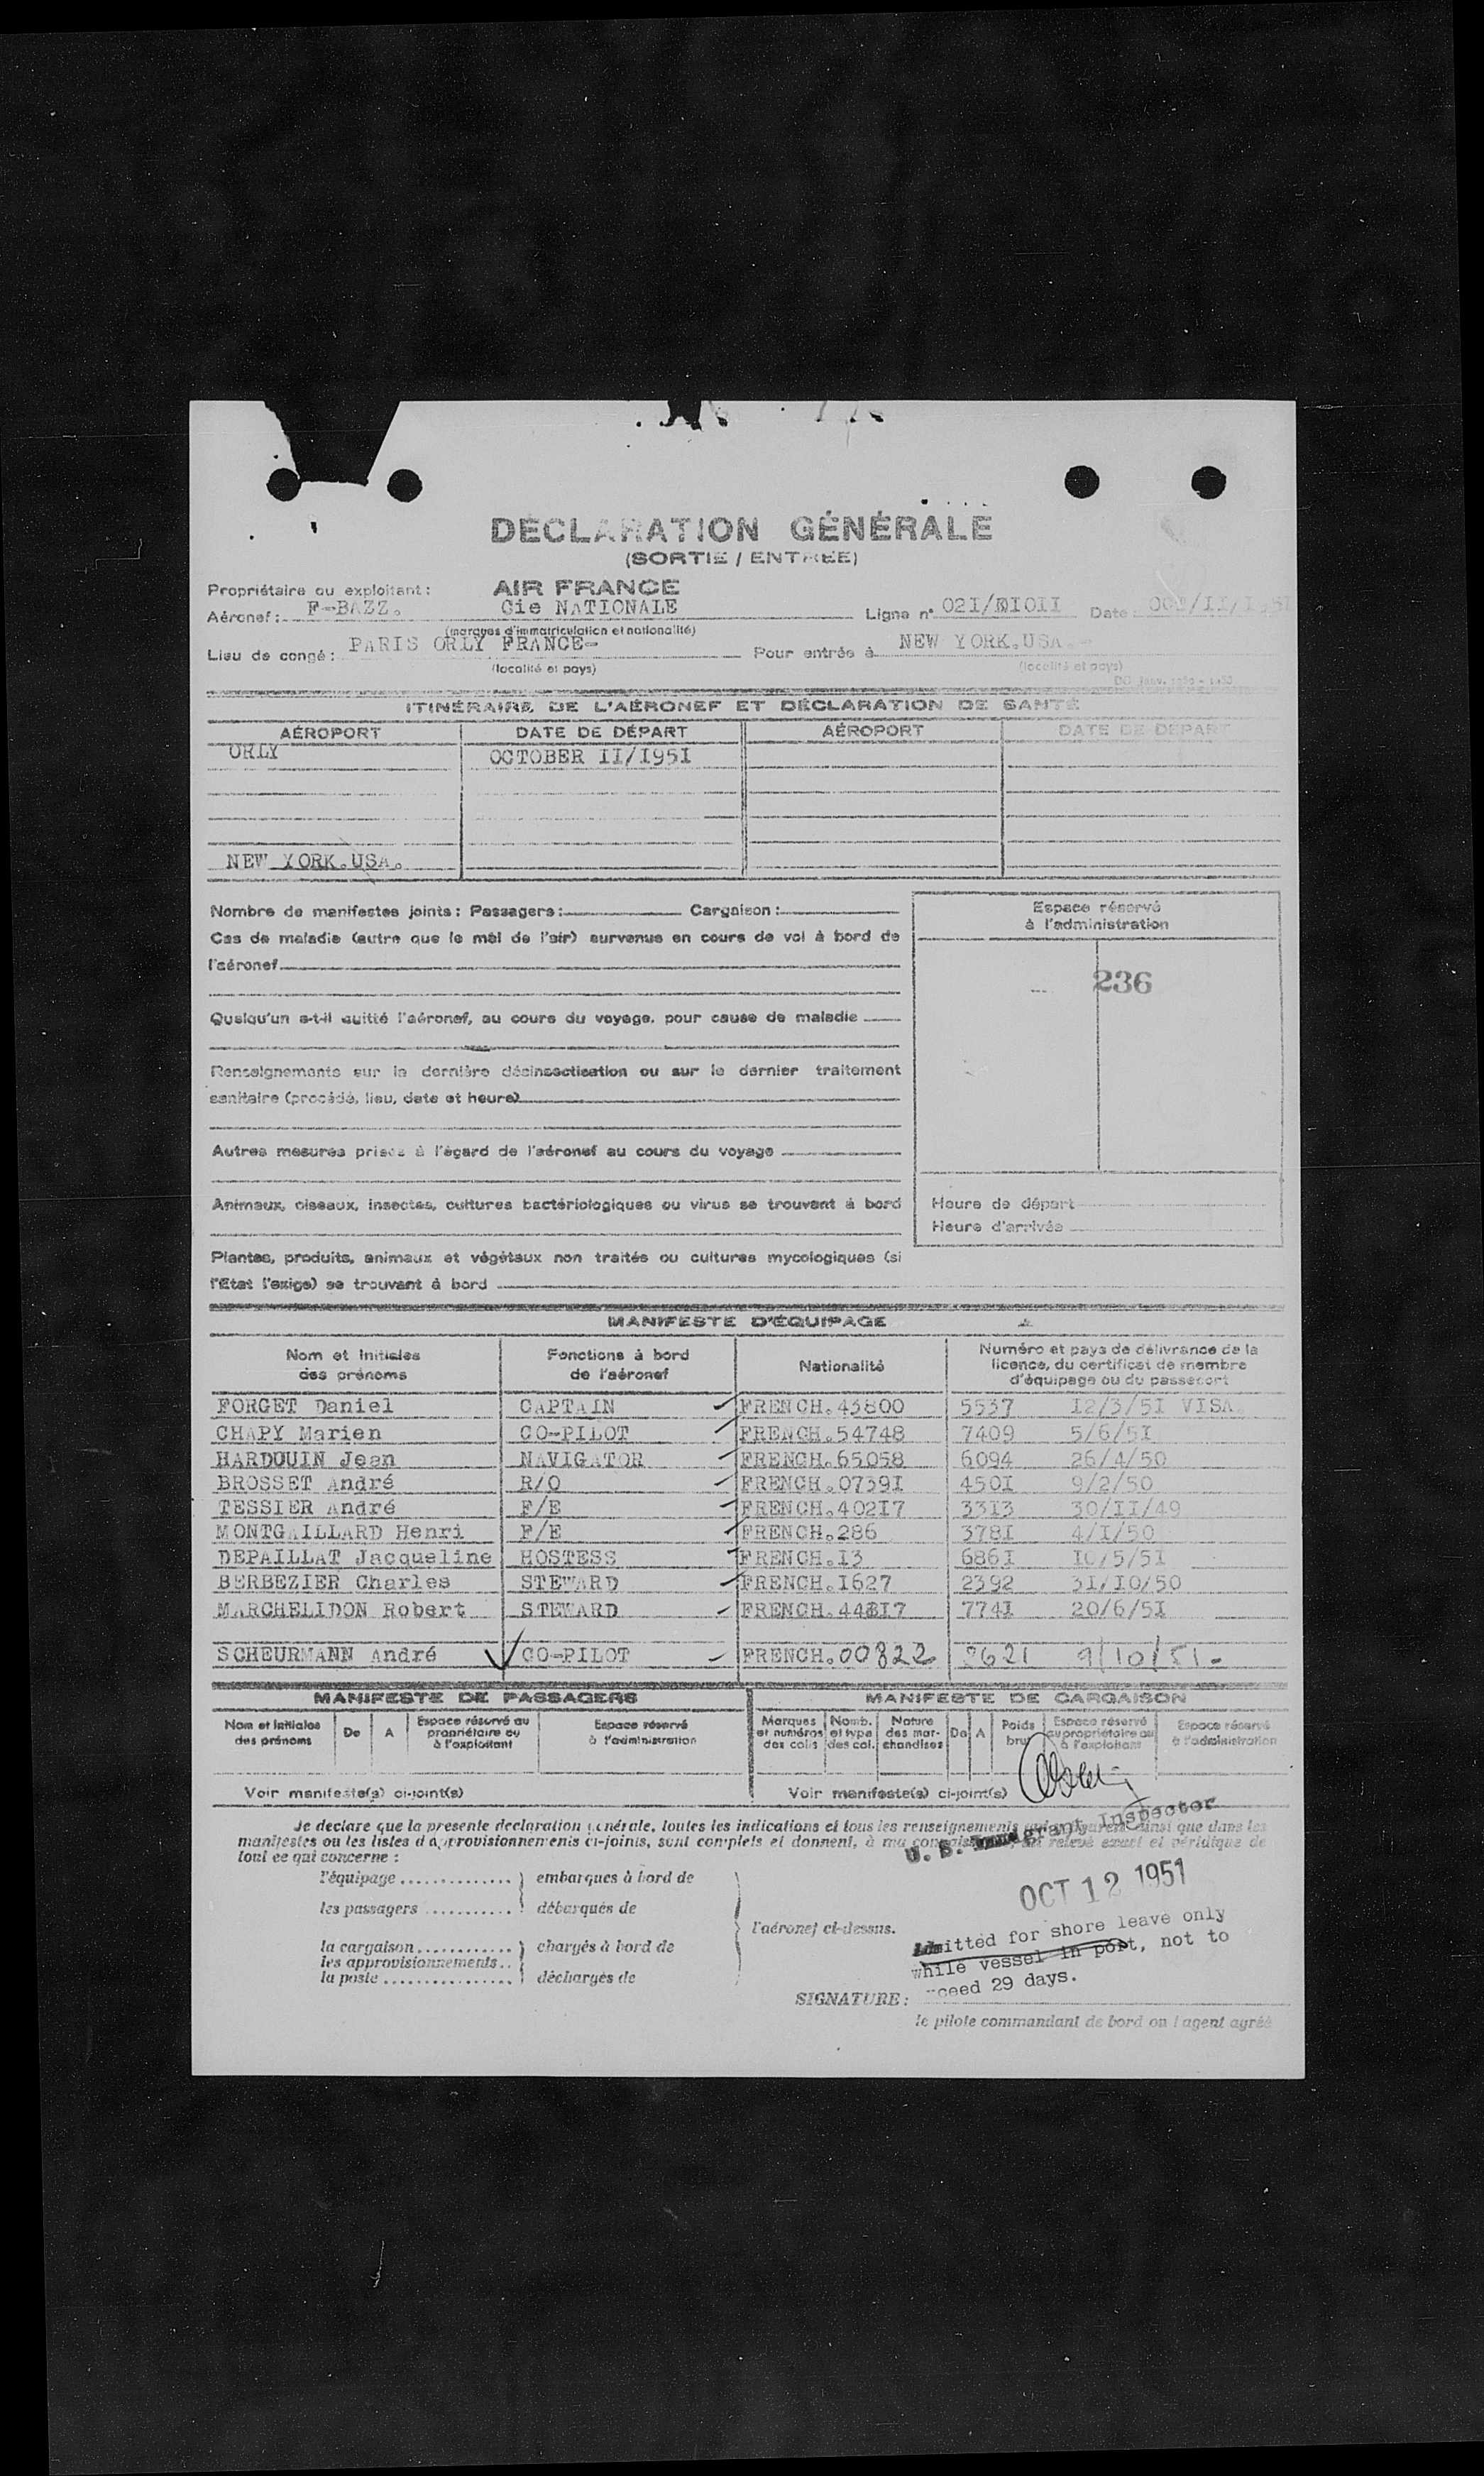 DÉCLARATION GÉNÉRALE
(SORTIE / ENTRÉE)
Propriétaire ou exploitant: AIR FRANCE
Aéronef: F-BAZZ. Cie NATIONALE Ligne n° 02I/DIOII Date: OCT/II/I951
(marques d'immatriculation et nationalité)
Lieu de congé: PARIS ORLY FRANCE- Pour entrée à NEW YORK.USA.-
(localité et pays) (localité et pays)
ITINÉRAIRE DE L'AÉRONEF ET DÉCLARATION DE SANTÉ
AÉROPORT DATE DE DÉPART AÉROPORT DATE DE DÉPART
ORLY OCTOBER II/I95I
NEW YORK.USA.
Nombre de manifestes joints: Passagers: Cargaison:
Cas de maladie (autre que le mal de l'air) survenus en cours de vol à bord de
l'aéronef
Quelqu'un a-t-il quitté l'aéronef, au cours du voyage, pour cause de maladie
Renseignements sur la dernière désinsectisation ou sur le dernier traitement
sanitaire (procédé, lieu, date et heure)
Autres mesures prises à l'égard de l'aéronef au cours du voyage
Animaux, oiseaux, insectes, cultures bactériologiques ou virus se trouvant à bord
Plantes, produits, animaux et végétaux non traités ou cultures mycologiques (si
l'Etat l'exige) se trouvant à bord
Espace réservé
à l'administration
236
Heure de départ
Heure d'arrivée
MANIFESTE D'ÉQUIPAGE
Nom et Initiales des prénoms Fonctions à bord de l'aéronef Nationalité Numéro et pays de délivrance de la licence, du certificat de membre d'équipage ou du passeport
FORGET Daniel CAPTAIN FRENCH.43800 5537 I2/3/5I VISA.
CHAPY Marien CO-PILOT FRENCH.54748 7409 5/6/5I
HARDOUIN Jean NAVIGATOR FRENCH.65058 6094 26/4/50
BROSSET André R/O FRENCH.0739I 450I 9/2/50
TESSIER André F/E FRENCH.402I7 33I3 30/II/49
MONTGAILLARD Henri F/E FRENCH.286 378I 4/I/50
DEPAILLAT Jacqueline HOSTESS FRENCH.I3 686I I0/5/5I
BERBEZIER Charles STEWARD FRENCH.I627 2392 3I/I0/50
MARCHELIDON Robert STEWARD FRENCH. 774I 20/6/5I
SCHEURMANN André CO-PILOT FRENCH.00822 8621 9/10/51-
MANIFESTE DE PASSAGERS MANIFESTE DE CARGAISON
Nom et Initiales des prénoms De A Espace réservé au propriétaire ou à l'exploitant Espace réservé à l'administration Marques et numéros des colis Nomb. et type des col. Nature des marchandises De A Poids brut Espace réservé au propriétaire ou à l'exploitant Espace réservé à l'administration
Voir manifeste(s) ci-joint(s) Voir manifeste(s) ci-joint(s)
Je declare que la presente declaration générale, toutes les indications et tous les renseignements qui figurent ainsi que dans les
manifestes ou les listes d'approvisionnements ci-joints, sont complets et donnent, à ma connaissance, un relevé exact et véridique de
tout ce qui concerne :
U. S. Immigrant Inspector
l'équipage .............. embarqués à bord de
les passagers ........... débarqués de
l'aéronef ci-dessus.
la cargaison ............ chargés à bord de
les approvisionnements ..
la poste ................ déchargés de
OCT 12 1951
Admitted for shore leave only
while vessel in port, not to
exceed 29 days.
SIGNATURE:
le pilote commandant de bord ou l'agent agréé